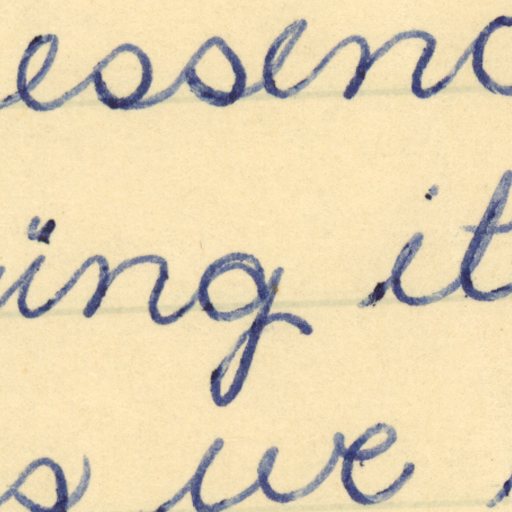 essenc
ing it
s we